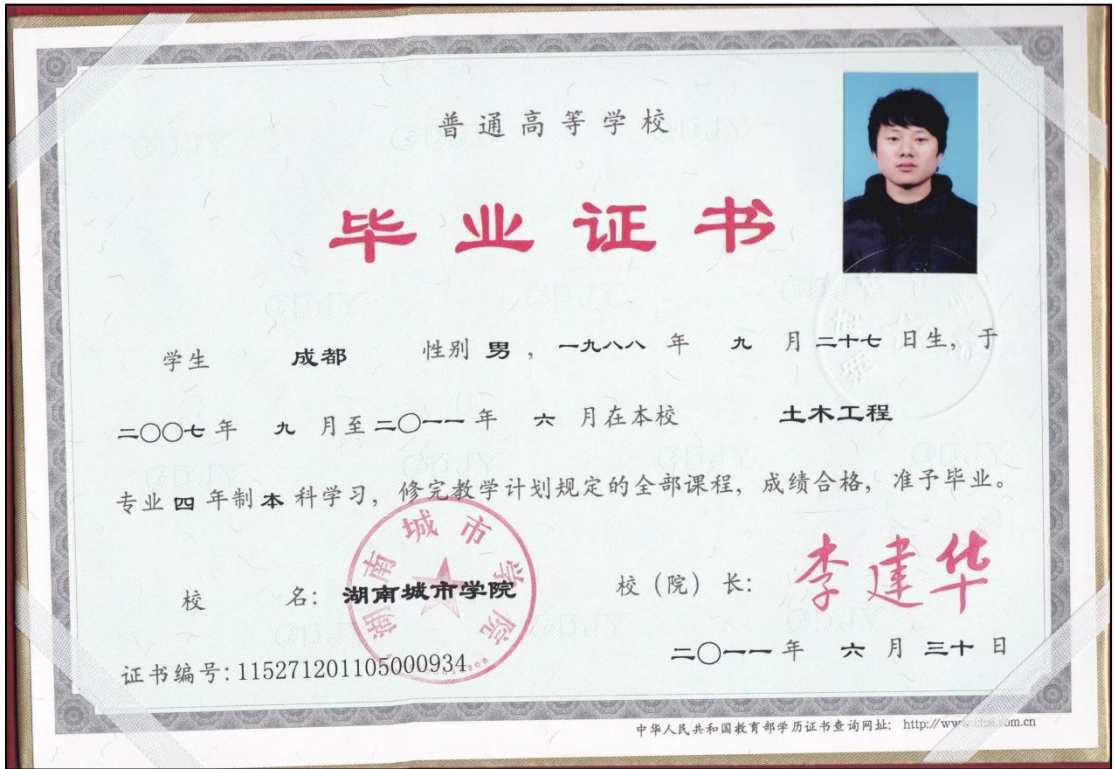 普通高等学校
毕业证书
学生 成都 性别 男 ，一九八八 年 九 月 二十七 日生，于
二〇〇七 年 九 月至 二〇一一 年 六 月在本校 土木工程
专业 四 年制 本 科学习，修完教学计划规定的全部课程，成绩合格，准予毕业。
湖南城市学院
校 名：湖南城市学院 校（院）长：李建华
证书编号：115271201105000934 二〇一一 年 六 月 三十 日
中华人民共和国教育部学历证书查询网址：http://www.com.cn